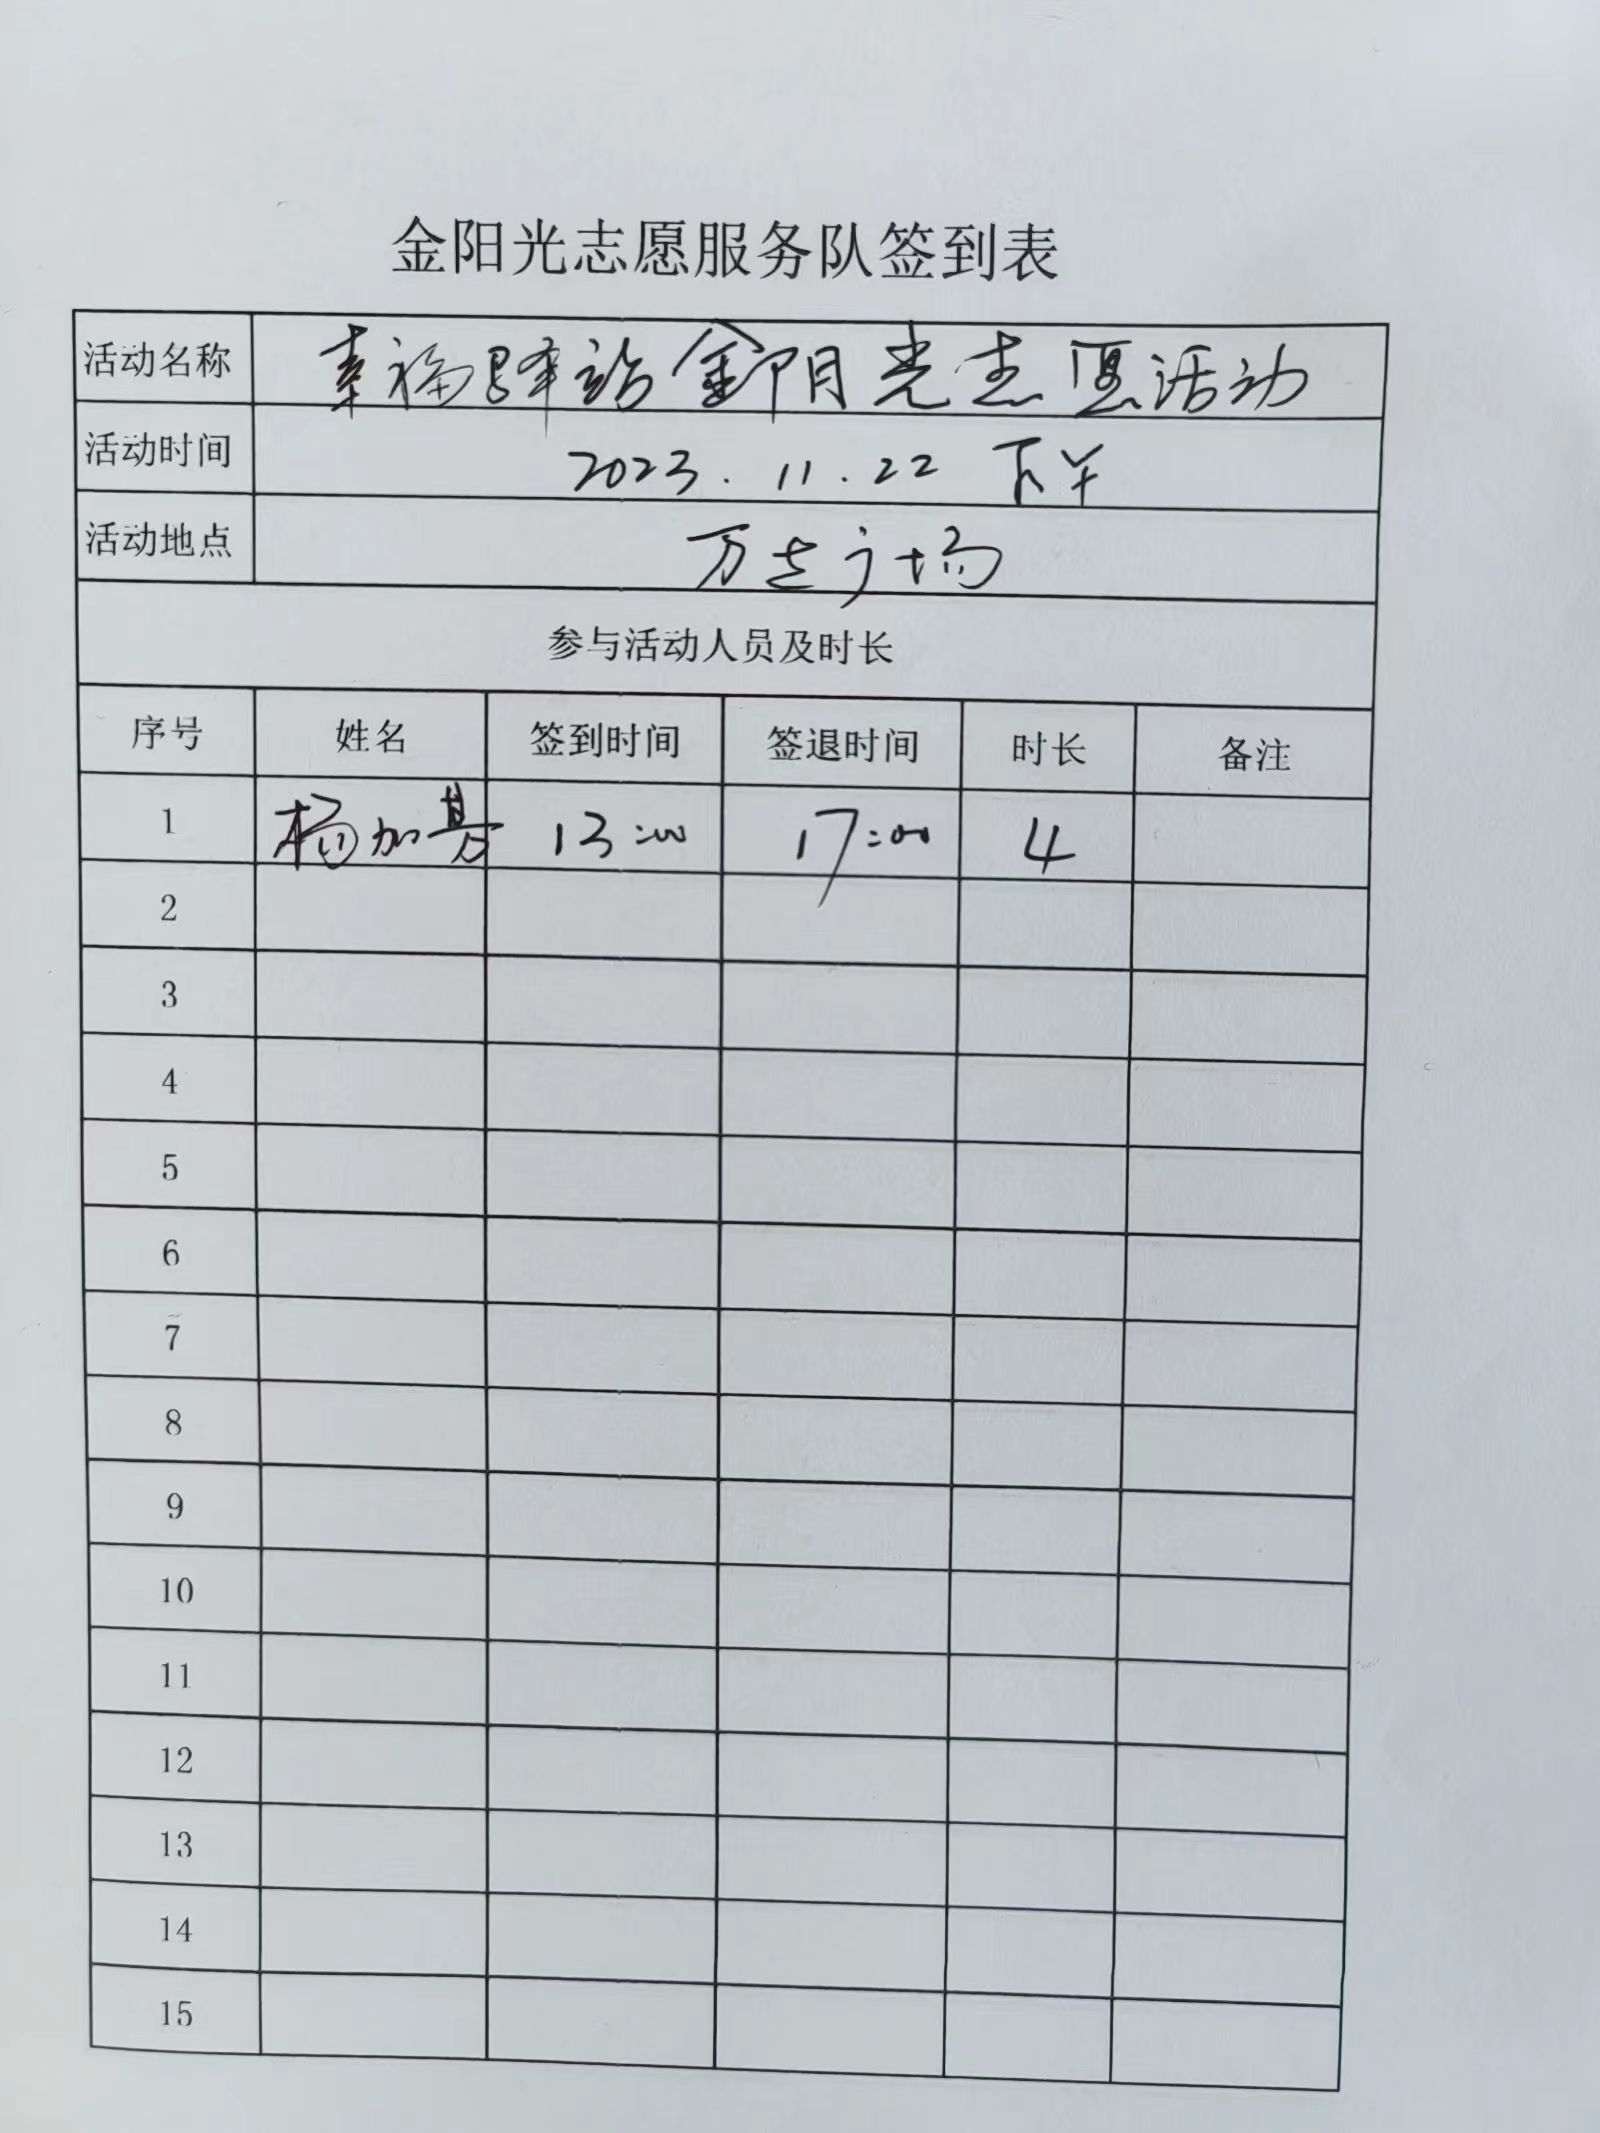 金阳光志愿服务队签到表
活动名称 幸福驿站金阳光志愿活动
活动时间 2023.11.22 下午
活动地点 万达广场
参与活动人员及时长
序号 姓名 签到时间 签退时间 时长 备注
1 杨加 13:00 17:00 4
2
3
4
5
6
7
8
9
10
11
12
13
14
15